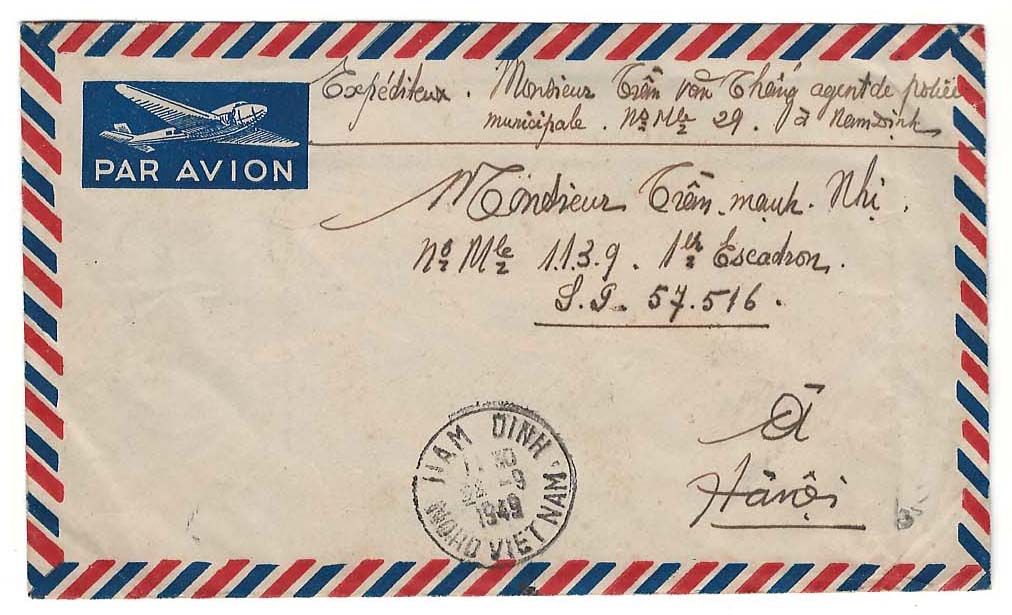 PAR AVION
Expéditeur. Monsieur Trần văn Thắng agent de police
municipale. No Mle 29. à NamĐịnh
Monsieur Trần. mạnh. Nhị.
No Mle 1139. 1er Escadron.
S.P. 57.516.
à
Hànội
NAM DINH
1949
VIETNAM